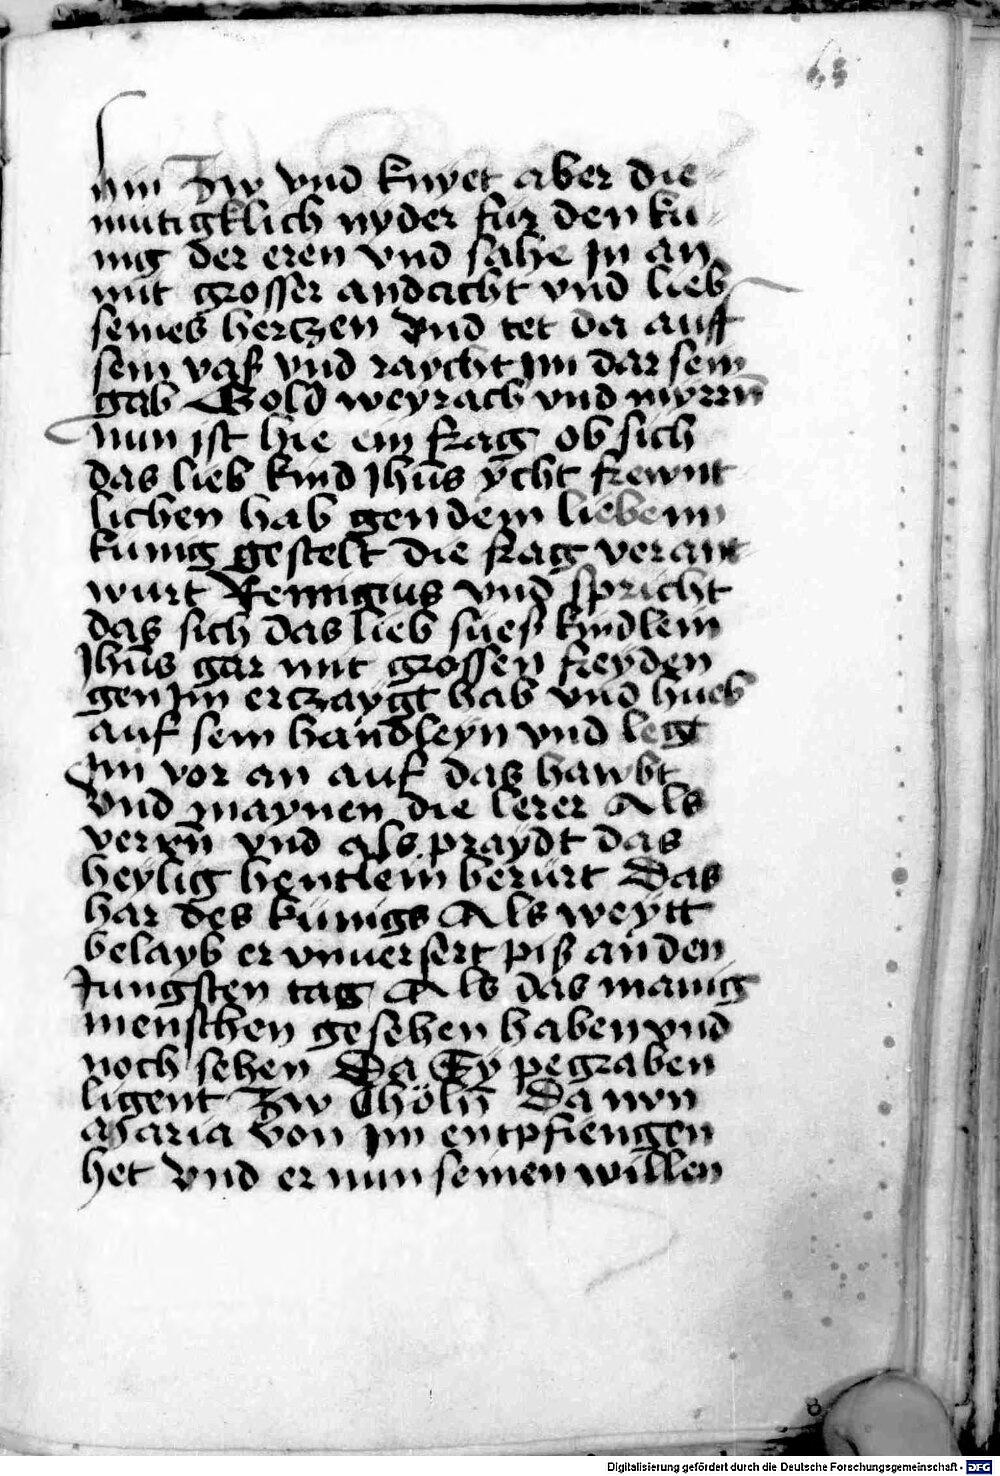 68
hin Zw vnd knyet aber die
mutigklich nyder fur den ku
nig der eren vnd sahe Jn an
mit grosser andacht vnd lieb
seines hertzen Vnd tet da auff
sein vaß vnd raycht Jm dar sein
gab Gold weyrach vnd myrrn̄
nun ist hie ein frag ob sich
das lieb kind Jhūs ycht frewnt
lichen hab gen dem liebenn
kunig gestelt die frag verant
wurt Remigius vnd spricht
das sich das lieb sues kindlein
Jhūs gar mit grossen freyden
gen Jm ertzaygt hab vnd hueb
auf sein handleyn vnd legt
Jm vor an auf das hawbt
vnd maynen die lerer Als
verrn̄ vnd als praydt das
heylig hentlein berürt Das
har des künigs Als weytt
belayb er vnuersert piß an den
Jungsten tag Als das manig
menschen gesehen haben vnd
noch sehen Da Sy pegraben
ligent Zw Chöln̄ Da nvn
Maria von Jm entpfiengen
het Vnd er nun seinen willen
8
Digitalisierung gefördert durch die Deutsche Forschungsgemeinschaft - DFG